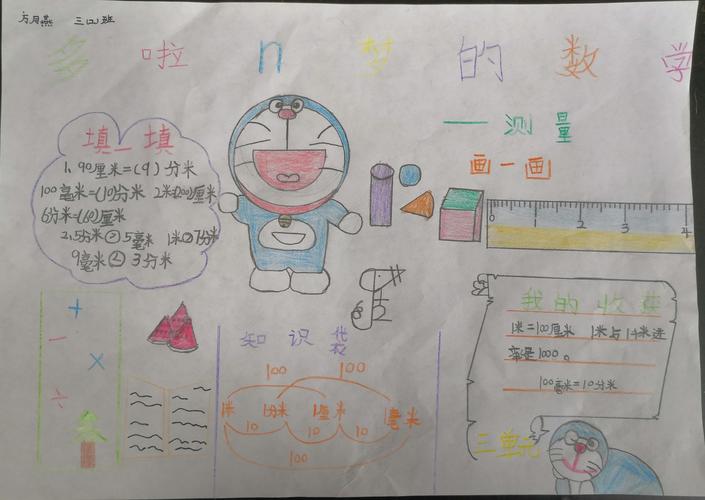 方月燕 三(2)班
多啦n梦的数学
——测量
填一填
1. 90厘米=(9)分米
100毫米=(10)分米 2米=(200)厘米
6分米=(60)厘米
2.5分米>5毫米 1米>7分米
9毫米<3分米
画一画
0 1 2 3 4
+
-
×
÷
知识
100 100
1米 1分米 1厘米 1毫米
10 10 10
100
我的收获
1米=100厘米 1米与1千米进
率是1000。
100毫米=10分米
三单元